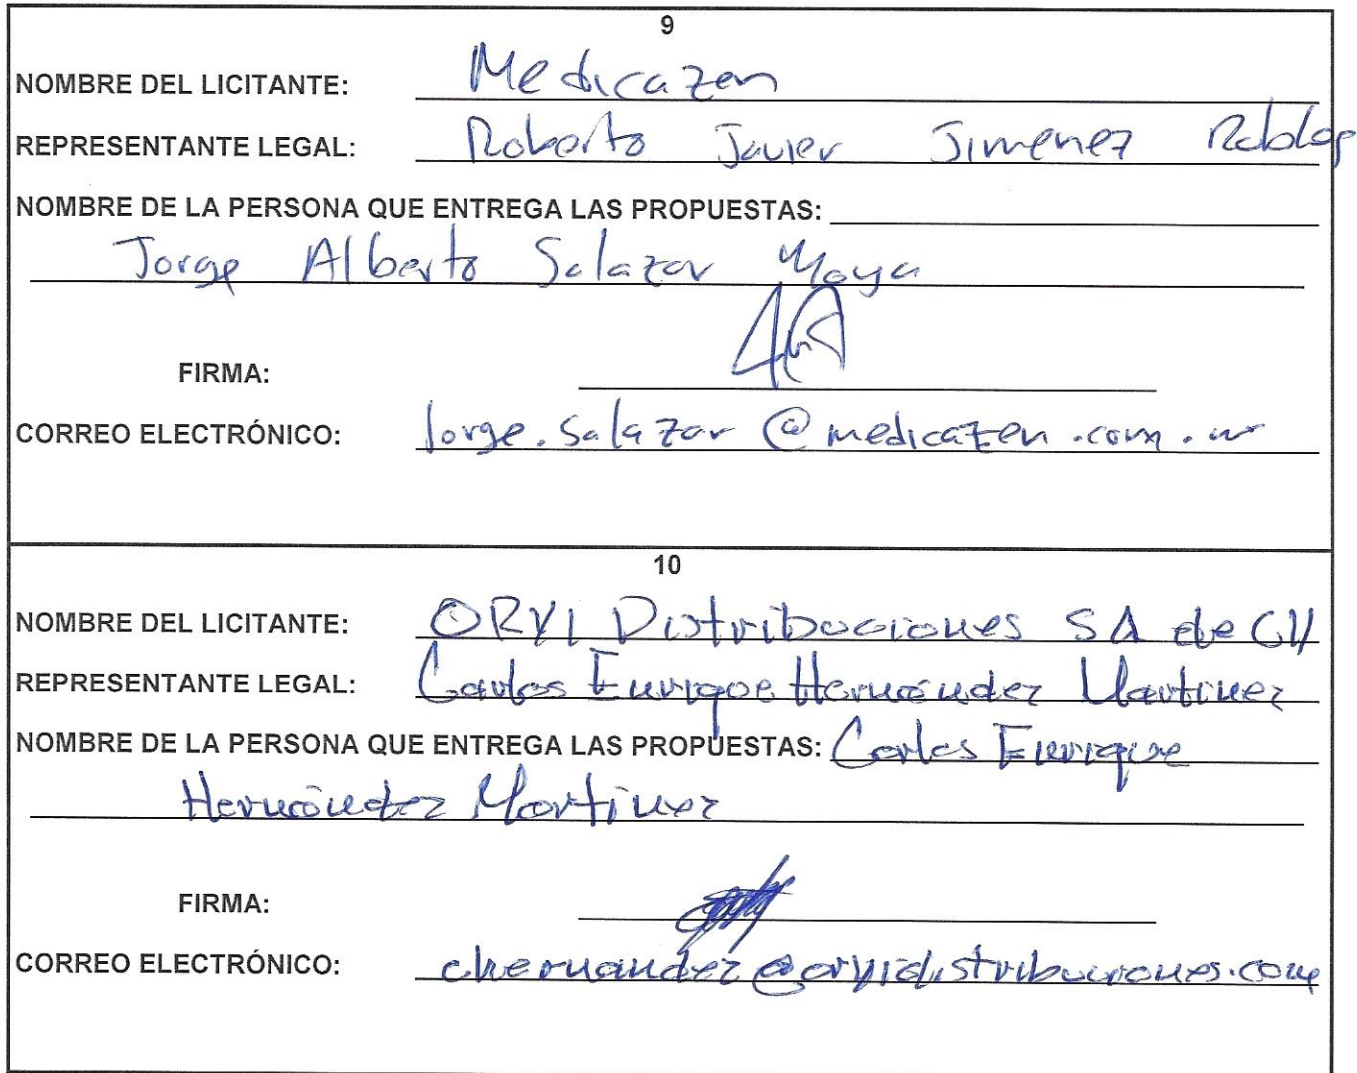 9
NOMBRE DEL LICITANTE: Medicazen
REPRESENTANTE LEGAL: Roberto Javier Jimenez Robles
NOMBRE DE LA PERSONA QUE ENTREGA LAS PROPUESTAS:
Jorge Alberto Salazar Moya
FIRMA:
CORREO ELECTRÓNICO: jorge.salazar@medicazen.com.
10
NOMBRE DEL LICITANTE: ORVI Distribuciones SA de CV
REPRESENTANTE LEGAL: Carlos Enrique Hernández Martinez
NOMBRE DE LA PERSONA QUE ENTREGA LAS PROPUESTAS: Carlos Enrique
Hernández Martinez
FIRMA:
CORREO ELECTRÓNICO: chernandez@orvidistribuciones.com